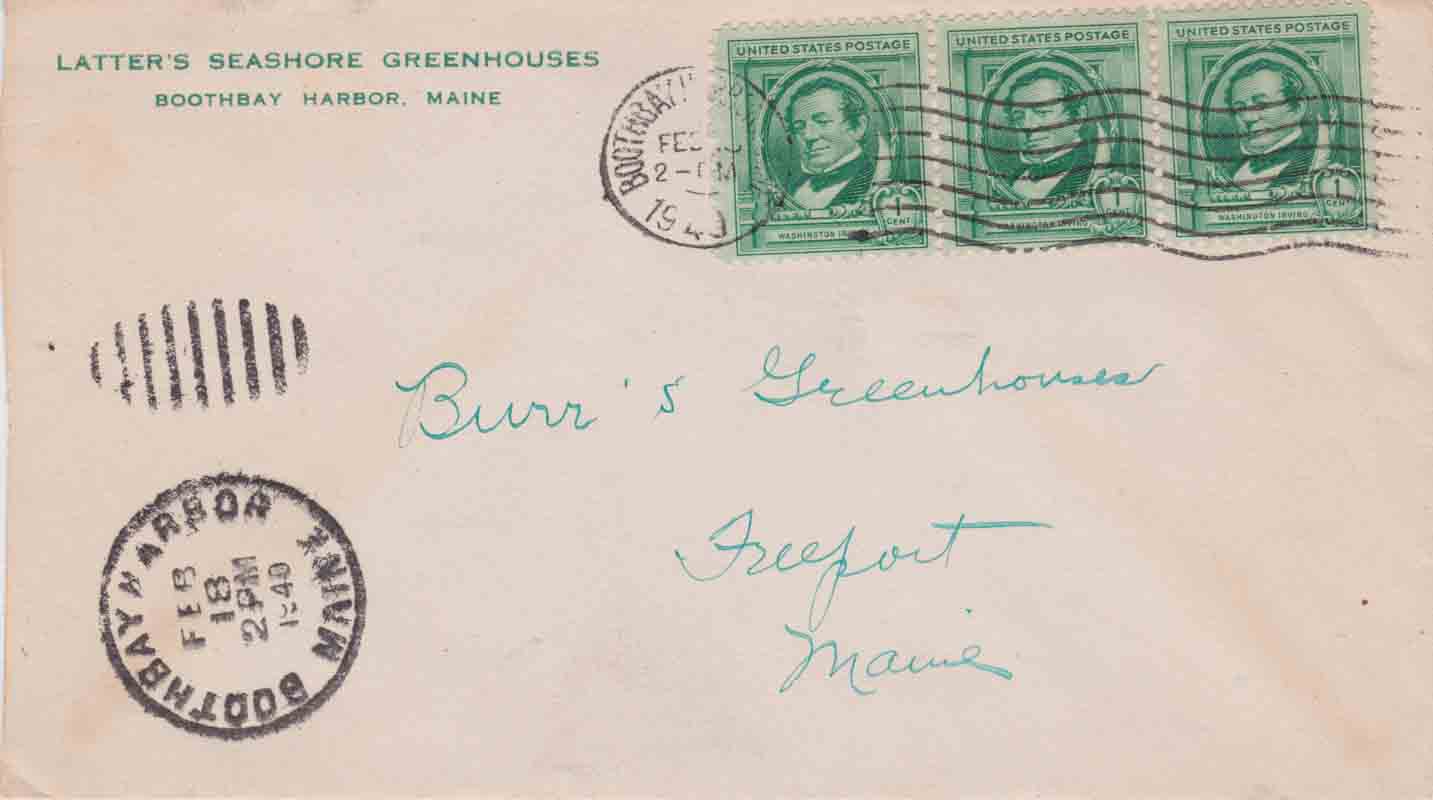 LATTER'S SEASHORE GREENHOUSES
BOOTHBAY HARBOR, MAINE
BOOTHBAY
FEB
2-PM
1940
UNITED STATES POSTAGE
1 CENT
WASHINGTON IRVING
UNITED STATES POSTAGE
1
WASHINGTON IRVING
UNITED STATES POSTAGE
1 CENT
WASHINGTON IRVING
Burr's Greenhouses
Freeport
Maine
BOOTHBAY HARBOR MAINE
FEB
18
2PM
1940